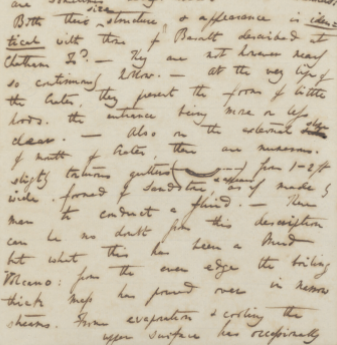 are
Both their structure, & appearance is iden-
tical with those of Basalt described at
Chatham Isd. — They are not however nearly
so continuously hollow. — at the very lip of
the Crater, they present the form of little
hoods. the entrance being more or less
clear. — Also on the external slope
of mouth of Crater, there are numerous
slightly tortuous gutters from 1-2 ft
wide. formed of Sandstone, as if made by
man to conduct a fluid. — There
can be no doubt from this description
but what this has been a Mud
Volcano: from the even edge the boiling
thick mass has poured over in narrow
streams. From evaporation & cooling the
upper surface has occasionally